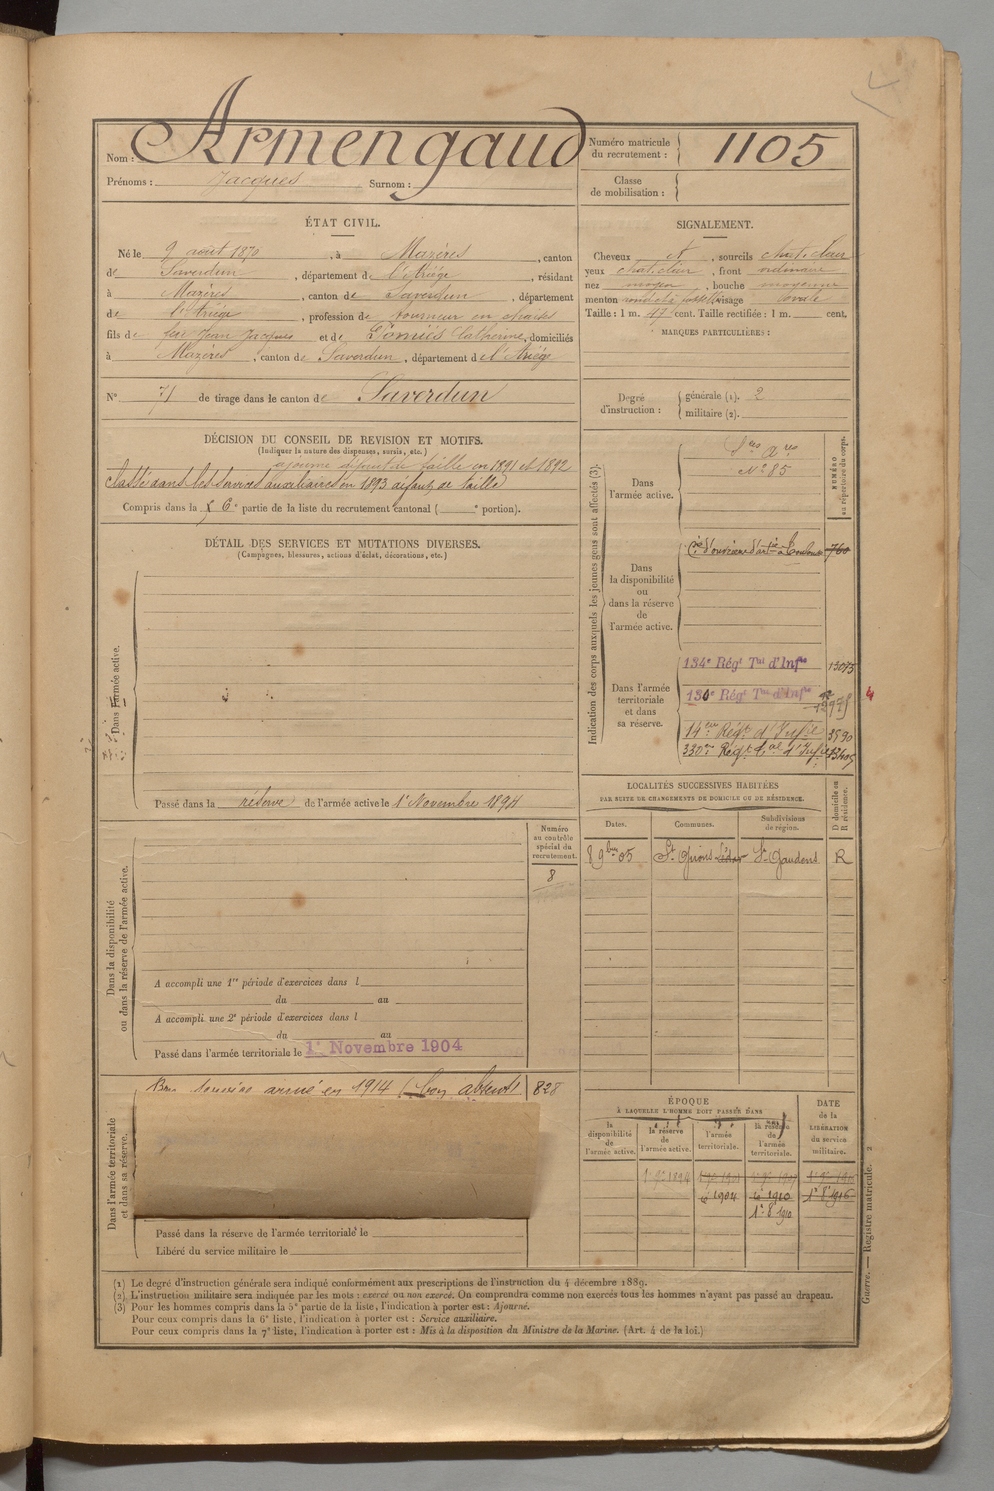 Nom : Armengaud
Prénoms : Jacques Surnom :
Numéro matricule du recrutement : 1105
Classe de mobilisation :
ÉTAT CIVIL.
Né le 9 août 1870, à Mazères, canton
de Saverdun, département de l'Ariége, résidant
à Mazères, canton de Saverdun, département
de l'Ariége, profession de tourneur en chaises
fils de feu Jean Jacques et de Catherine, domiciliés
à Mazères, canton de Saverdun, département de l'Ariége
N° 71 de tirage dans le canton de Saverdun
SIGNALEMENT.
Cheveux et, sourcils chat. clair
yeux chat. clair, front ordinaire
nez moyen, bouche moyenne
menton visage ovale
Taille : 1 m. 47 cent. Taille rectifiée : 1 m. cent.
MARQUES PARTICULIÈRES :
Degré d'instruction : générale (1). 2
militaire (2).
DÉCISION DU CONSEIL DE REVISION ET MOTIFS.
(Indiquer la nature des dispenses, sursis, etc.)
ajourné défaut de taille en 1891 et 1892
Classé dans les services auxiliaires en 1893 défaut de taille
Compris dans la 6e partie de la liste du recrutement cantonal ( e portion).
DÉTAIL DES SERVICES ET MUTATIONS DIVERSES.
(Campagnes, blessures, actions d'éclat, décorations, etc.)
Dans l'armée active.
Passé dans la réserve de l'armée active le 1er Novembre 1894
Indication des corps auxquels les jeunes gens sont affectés (3).
NUMÉRO au répertoire du corps.
Dans l'armée active.
Sces Ares
N° 85
Dans la disponibilité ou dans la réserve de l'armée active.
Cie d'ouvriers d'artie à Toulouse 760
Dans l'armée territoriale et dans sa réserve.
134e Régt Tal d'Infie 13075
130e Régt Tal d'Infie
14eme Régt d'Infie 3590
330me Régt tal d'Infie
LOCALITÉS SUCCESSIVES HABITÉES
PAR SUITE DE CHANGEMENTS DE DOMICILE OU DE RÉSIDENCE.
D domicile ou R résidence.
Dates. Communes. Subdivisions de région.
8 9bre 05 St Girons St Gaudens R
Numéro au contrôle spécial du recrutement.
8
Dans la disponibilité ou dans la réserve de l'armée active.
A accompli une 1re période d'exercices dans l
du au
A accompli une 2e période d'exercices dans l
du au
Passé dans l'armée territoriale le 1er Novembre 1904
Dans l'armée territoriale et dans sa réserve.
armé en 1914 (bon absent) 828
Passé dans la réserve de l'armée territoriale le
Libéré du service militaire le
ÉPOQUE
À LAQUELLE L'HOMME DOIT PASSER DANS
DATE de la LIBÉRATION du service militaire.
la disponibilité de l'armée active.
la réserve de l'armée active.
l'armée territoriale.
la réserve de l'armée territoriale.
1er 9bre 1894
1904 1910 1er 8 1916
1er 8 1910
(1) Le degré d'instruction générale sera indiqué conformément aux prescriptions de l'instruction du 4 décembre 1889.
(2) L'instruction militaire sera indiquée par les mots : exercé ou non exercé. On comprendra comme non exercés tous les hommes n'ayant pas passé au drapeau.
(3) Pour les hommes compris dans la 5e partie de la liste, l'indication à porter est : Ajourné.
Pour ceux compris dans la 6e liste, l'indication à porter est : Service auxiliaire.
Pour ceux compris dans la 7e liste, l'indication à porter est : Mis à la disposition du Ministre de la Marine. (Art. 4 de la loi.)
Guerre. — Registre matricule. 2